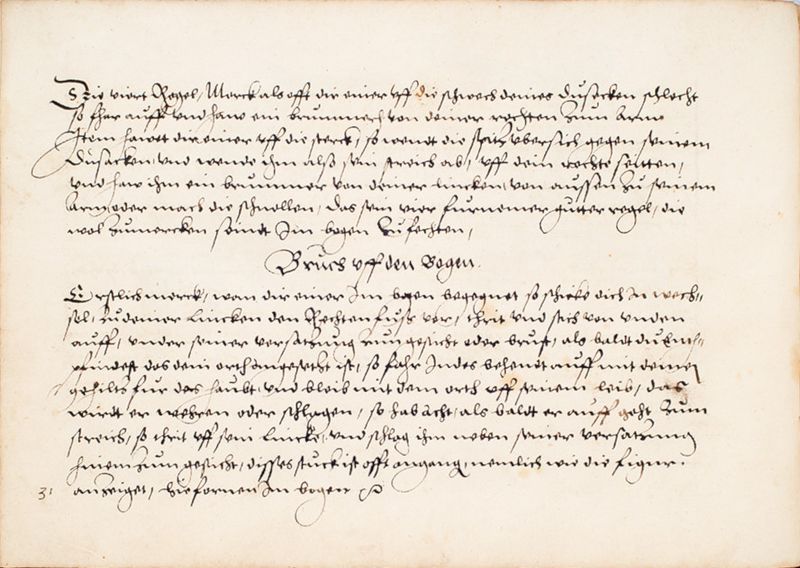 Die viert Regel, Merck als offt dir einer vff die schwech deines Dusacken schlecht
so fhar auff vnd haw ein brummerh von deiner rechten zum Arm
Item hawet dir einer vff die sterck, so wendt die spitz vbersich gegen seinem
Dusacken, vnd wende ihm alß sein streich ab, vff dein rechte seitten,
vnd haw ihm ein brummer von deiner lincken, von aussen zu seinem
Arm, oder mach die schnellen, das sein vier furnemer gutter regel, die
wol zumercken seindt Im bogen zufechten,
Bruch vff den Bogen.
Erstlich merck, wan dir einer Im bogen begegnet so schicke dich in wech=
sel, zu deiner lincken den Rechten fuß vor, thrit vnd stich von vnden
auff, vnder seiner versatzung zum gesicht oder brust, als baldt du Em=
pfindest das dein orth angesetzt ist, so fahr Indes behendt auff mit deinem
gehiltz fur das haubt, vnd bleib mit dem orth vff seinem leib, das
wirdt er wehren oder schlagen, so hab acht, als baldt er auff geht zum
streich, so thrit vff sein lincke, vnd schlag ihm neben seiner versatzung
hinein zum gesicht, disses stuck ist offt angang, nemlich wie die figur.
31 anzeiget, hieforen Im bogen